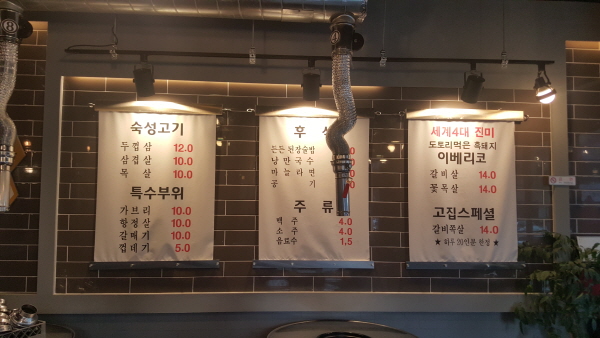 숙성고기
두껍살 12.0
삼겹살 10.0
목살 10.0
특수부위
가브리 10.0
항정살 10.0
갈매기 10.0
껍데기 5.0
후
든든된장술밥
낭만국수
마늘라면
공기
주류
맥주 4.0
소주 4.0
음료수 1.5
세계4대 진미
도토리먹은 흑돼지
이베리코
갈비살 14.0
꽃목살 14.0
고집스페셜
갈비쪽살 14.0
★ 하루 20인분 한정 ★
8